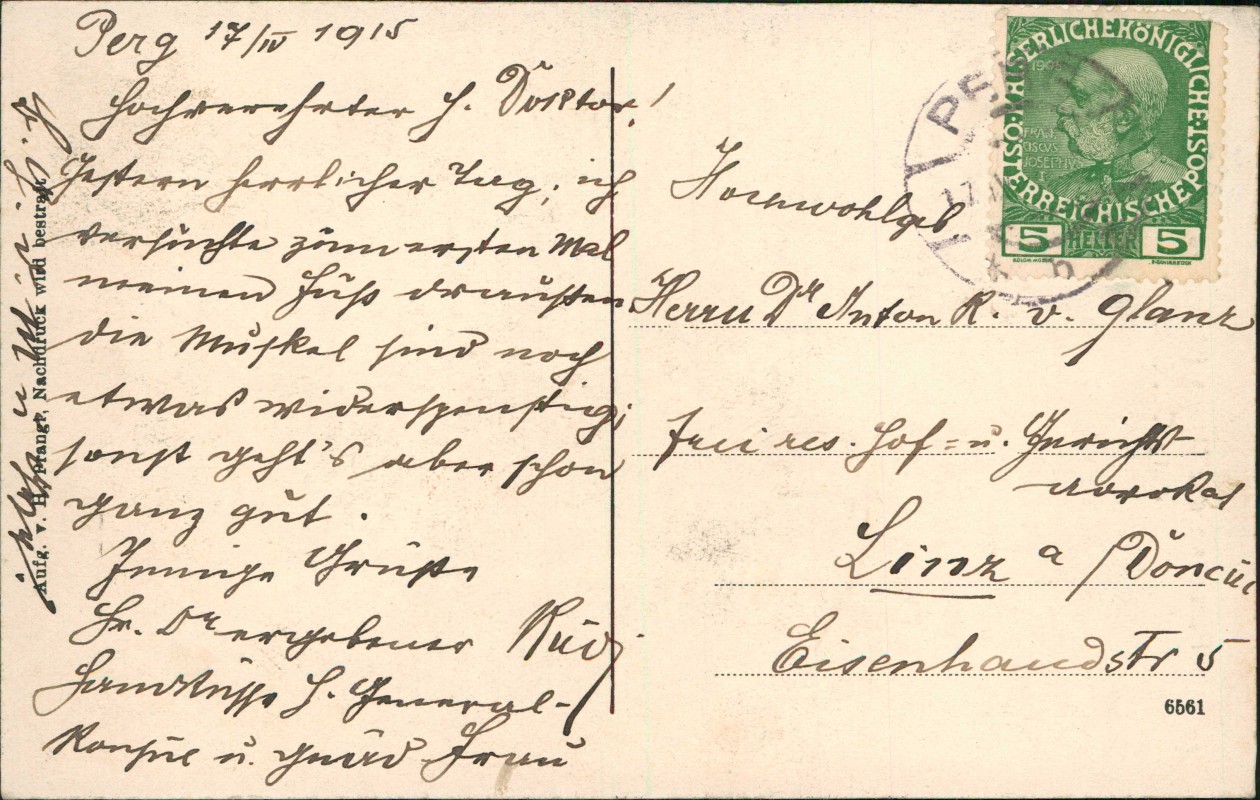 Perg 17/IV 1915
Hochverehrter H. Doktor!
Gestern herrlicher Tag, ich
versuchte zum ersten Mal
meinen Fuß draußen
die Muskel sind noch
etwas widerspenstig;
sonst geht's aber schon
ganz gut.
Innige Grüße
Hr. Dr ergebener Rudi
Handküsse H. General-
Konsul u. gnäd Frau
Aufg. v. H. Prangl, Nachdruck wird bestraft.
KAISERLICHE KÖNIGLICHE
ÖSTERREICHISCHE POST
1908
FRANCISCVS JOSEPHVS I.
5 HELLER 5
PERG
17
Hochwohlgeb
Herrn Dr Anton R. v. Glanz
frei res. Hof- u. Gerichts
advokat
Linz a/Donau
Eisenhandstr 5
6561